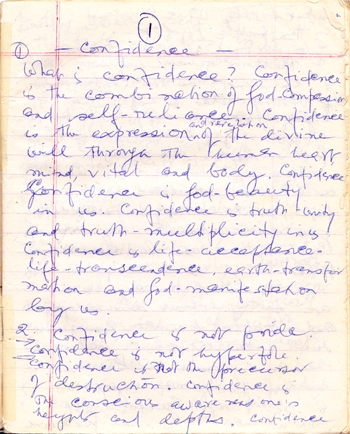 1
① — Confidence —
What is confidence? Confidence
is the combination of God-compassion
and self-reliance. Confidence
is the expression and revelation of the divine
will through the human heart
mind, vital and body. Confidence
Confidence is God-beauty
in us. Confidence is truth-unity
and truth-multiplicity in us
Confidence is life-acceptance-
life-transcendence, earth-transfor
mation and God-manifestation
by us.
2. Confidence is not pride.
Confidence is not hyperbole.
Confidence is not the precursor
of destruction. Confidence is
the conscious awareness of one's
heights and depths. Confidence